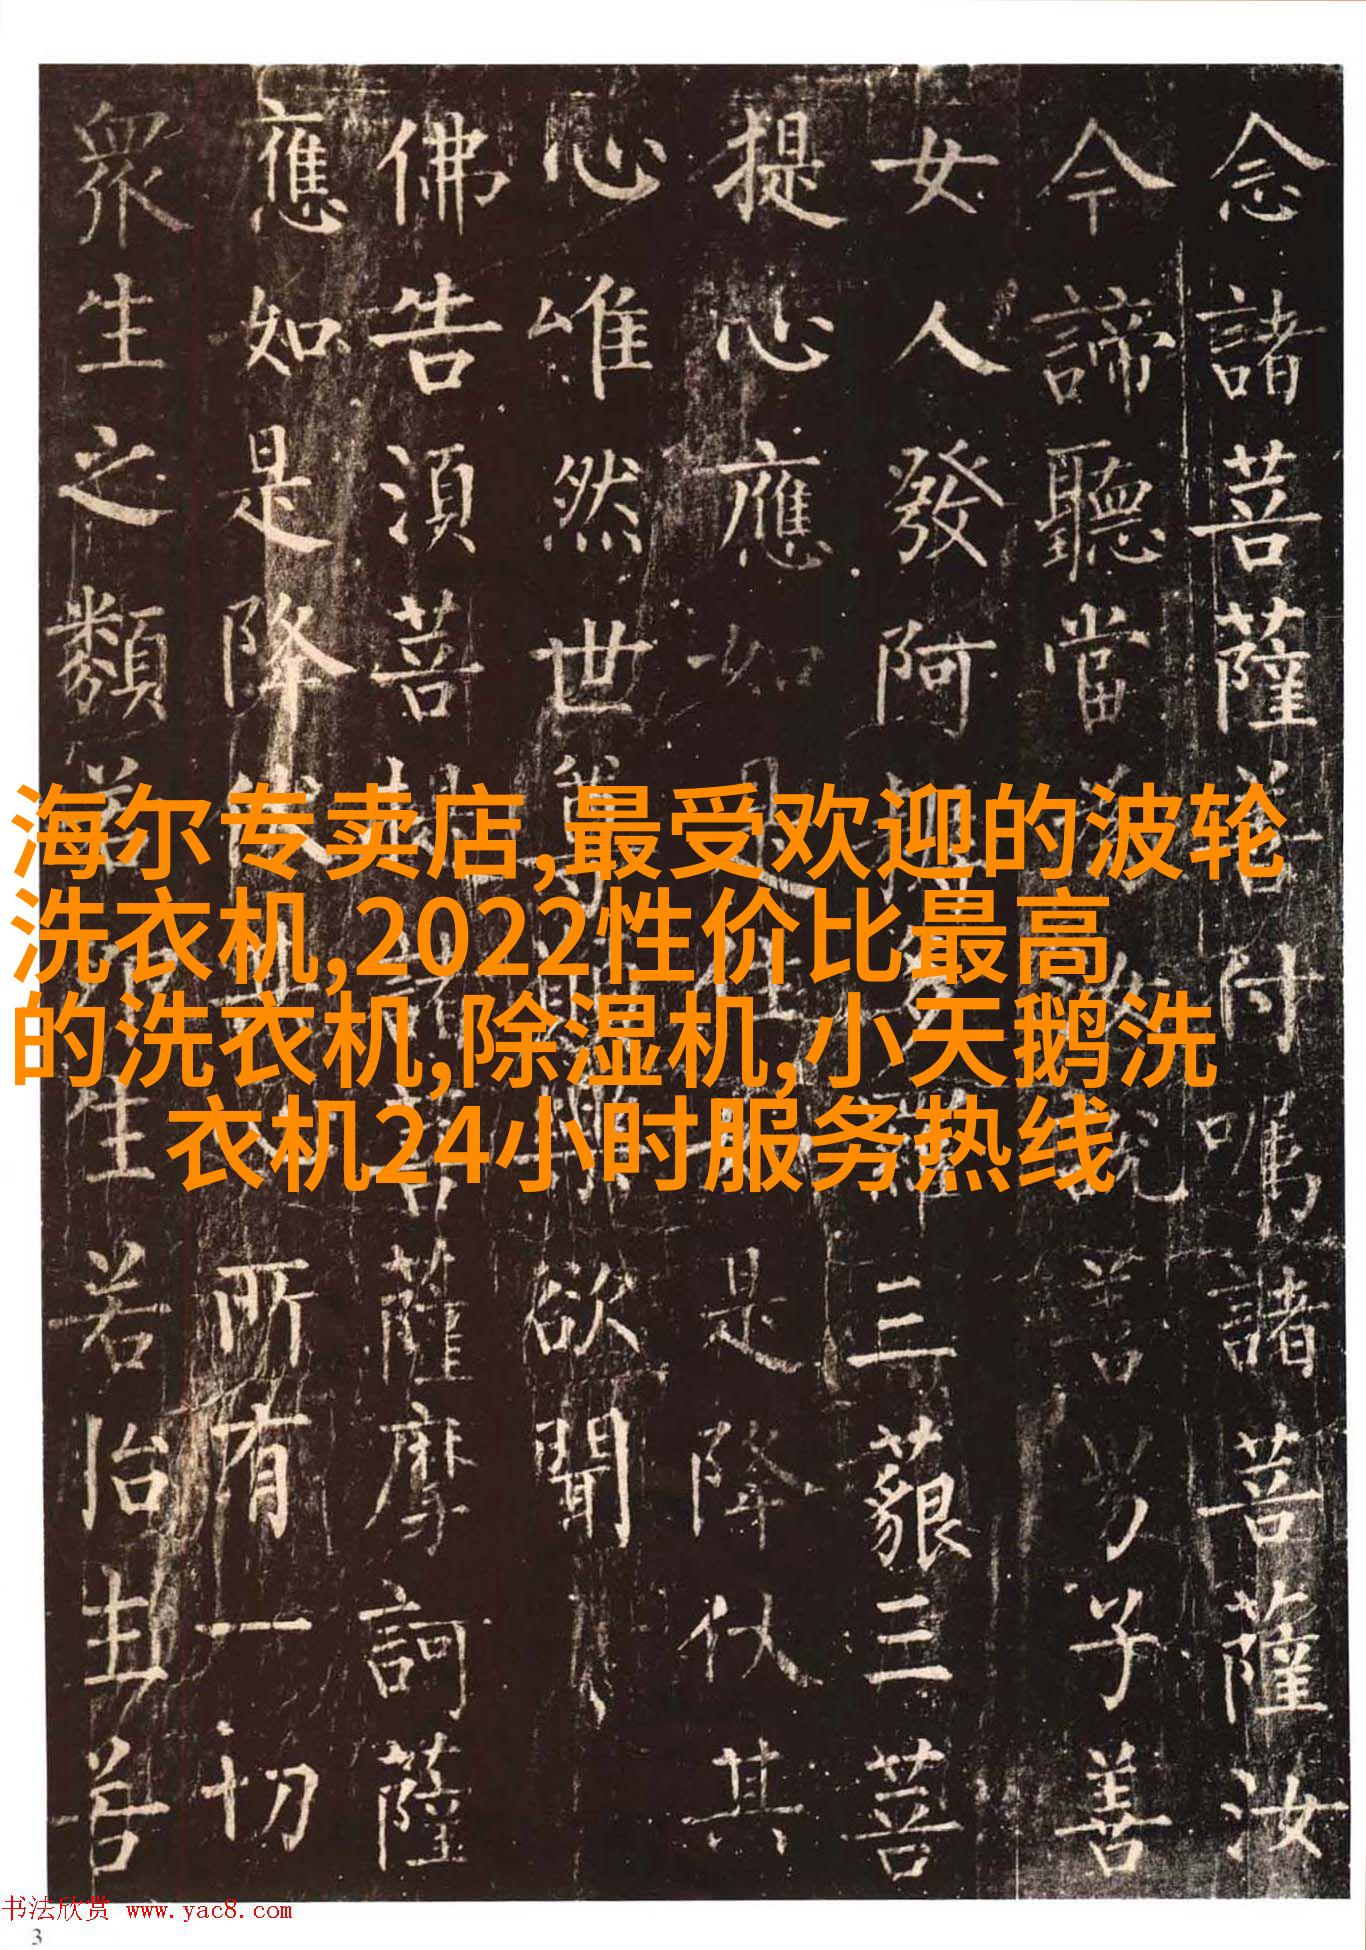 念諸菩薩善付嘱諸菩薩汝
今諦聽當說善男子善
女人發阿三藐三菩
提心應如是降伏其
心唯然世尊欲聞
佛告須菩薩摩訶薩
應如是降伏所有一切
眾生之類若生若胎生若
海尔专卖店,最受欢迎的波轮
洗衣机,2022性价比最高
的洗衣机,除湿机,小天鹅洗
衣机24小时服务热线
书法欣赏 www.yac8.com
3